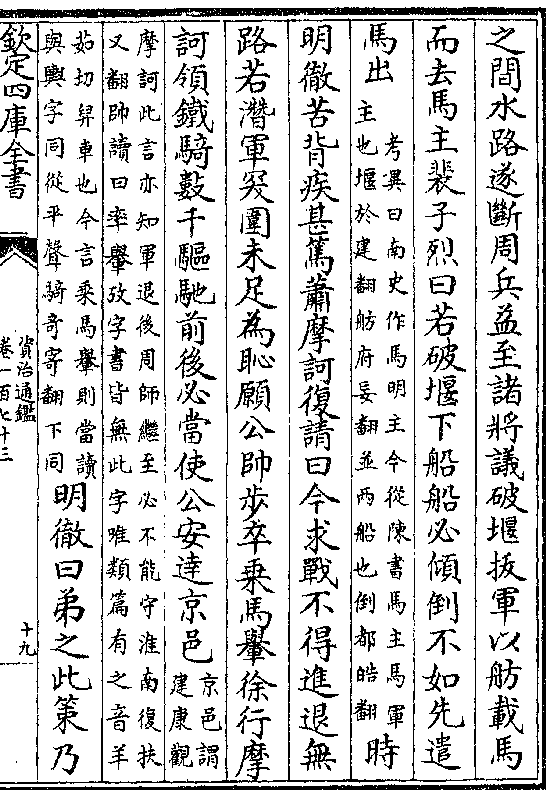 之間水路遂斷周兵益至諸將議破堰拔軍以舫載馬
而去馬主裴子烈曰若破堰下船船必傾倒不如先遣
馬出
考異曰南史作馬明主今從陳書馬主馬軍
主也堰於建翻舫府妄翻並兩船也倒都皓翻
時
明徹苦背疾甚篤蕭摩訶復請曰今求戰不得進退無
路若潛軍突圍未足為恥願公帥步卒乘馬轝徐行摩
訶領鐵騎數千驅馳前後必當使公安達京邑
京邑謂
建康觀
摩訶此言亦知軍退後周師繼至必不能守淮南復扶
又翻帥讀曰率轝攷字書皆無此字唯類篇有之音羊
茹切舁車也今言乘馬轝則當讀
與輿字同從平聲騎奇寄翻下同
明徹曰弟之此策乃
欽定四庫全書
資治通鑑
卷一百七十三
十九